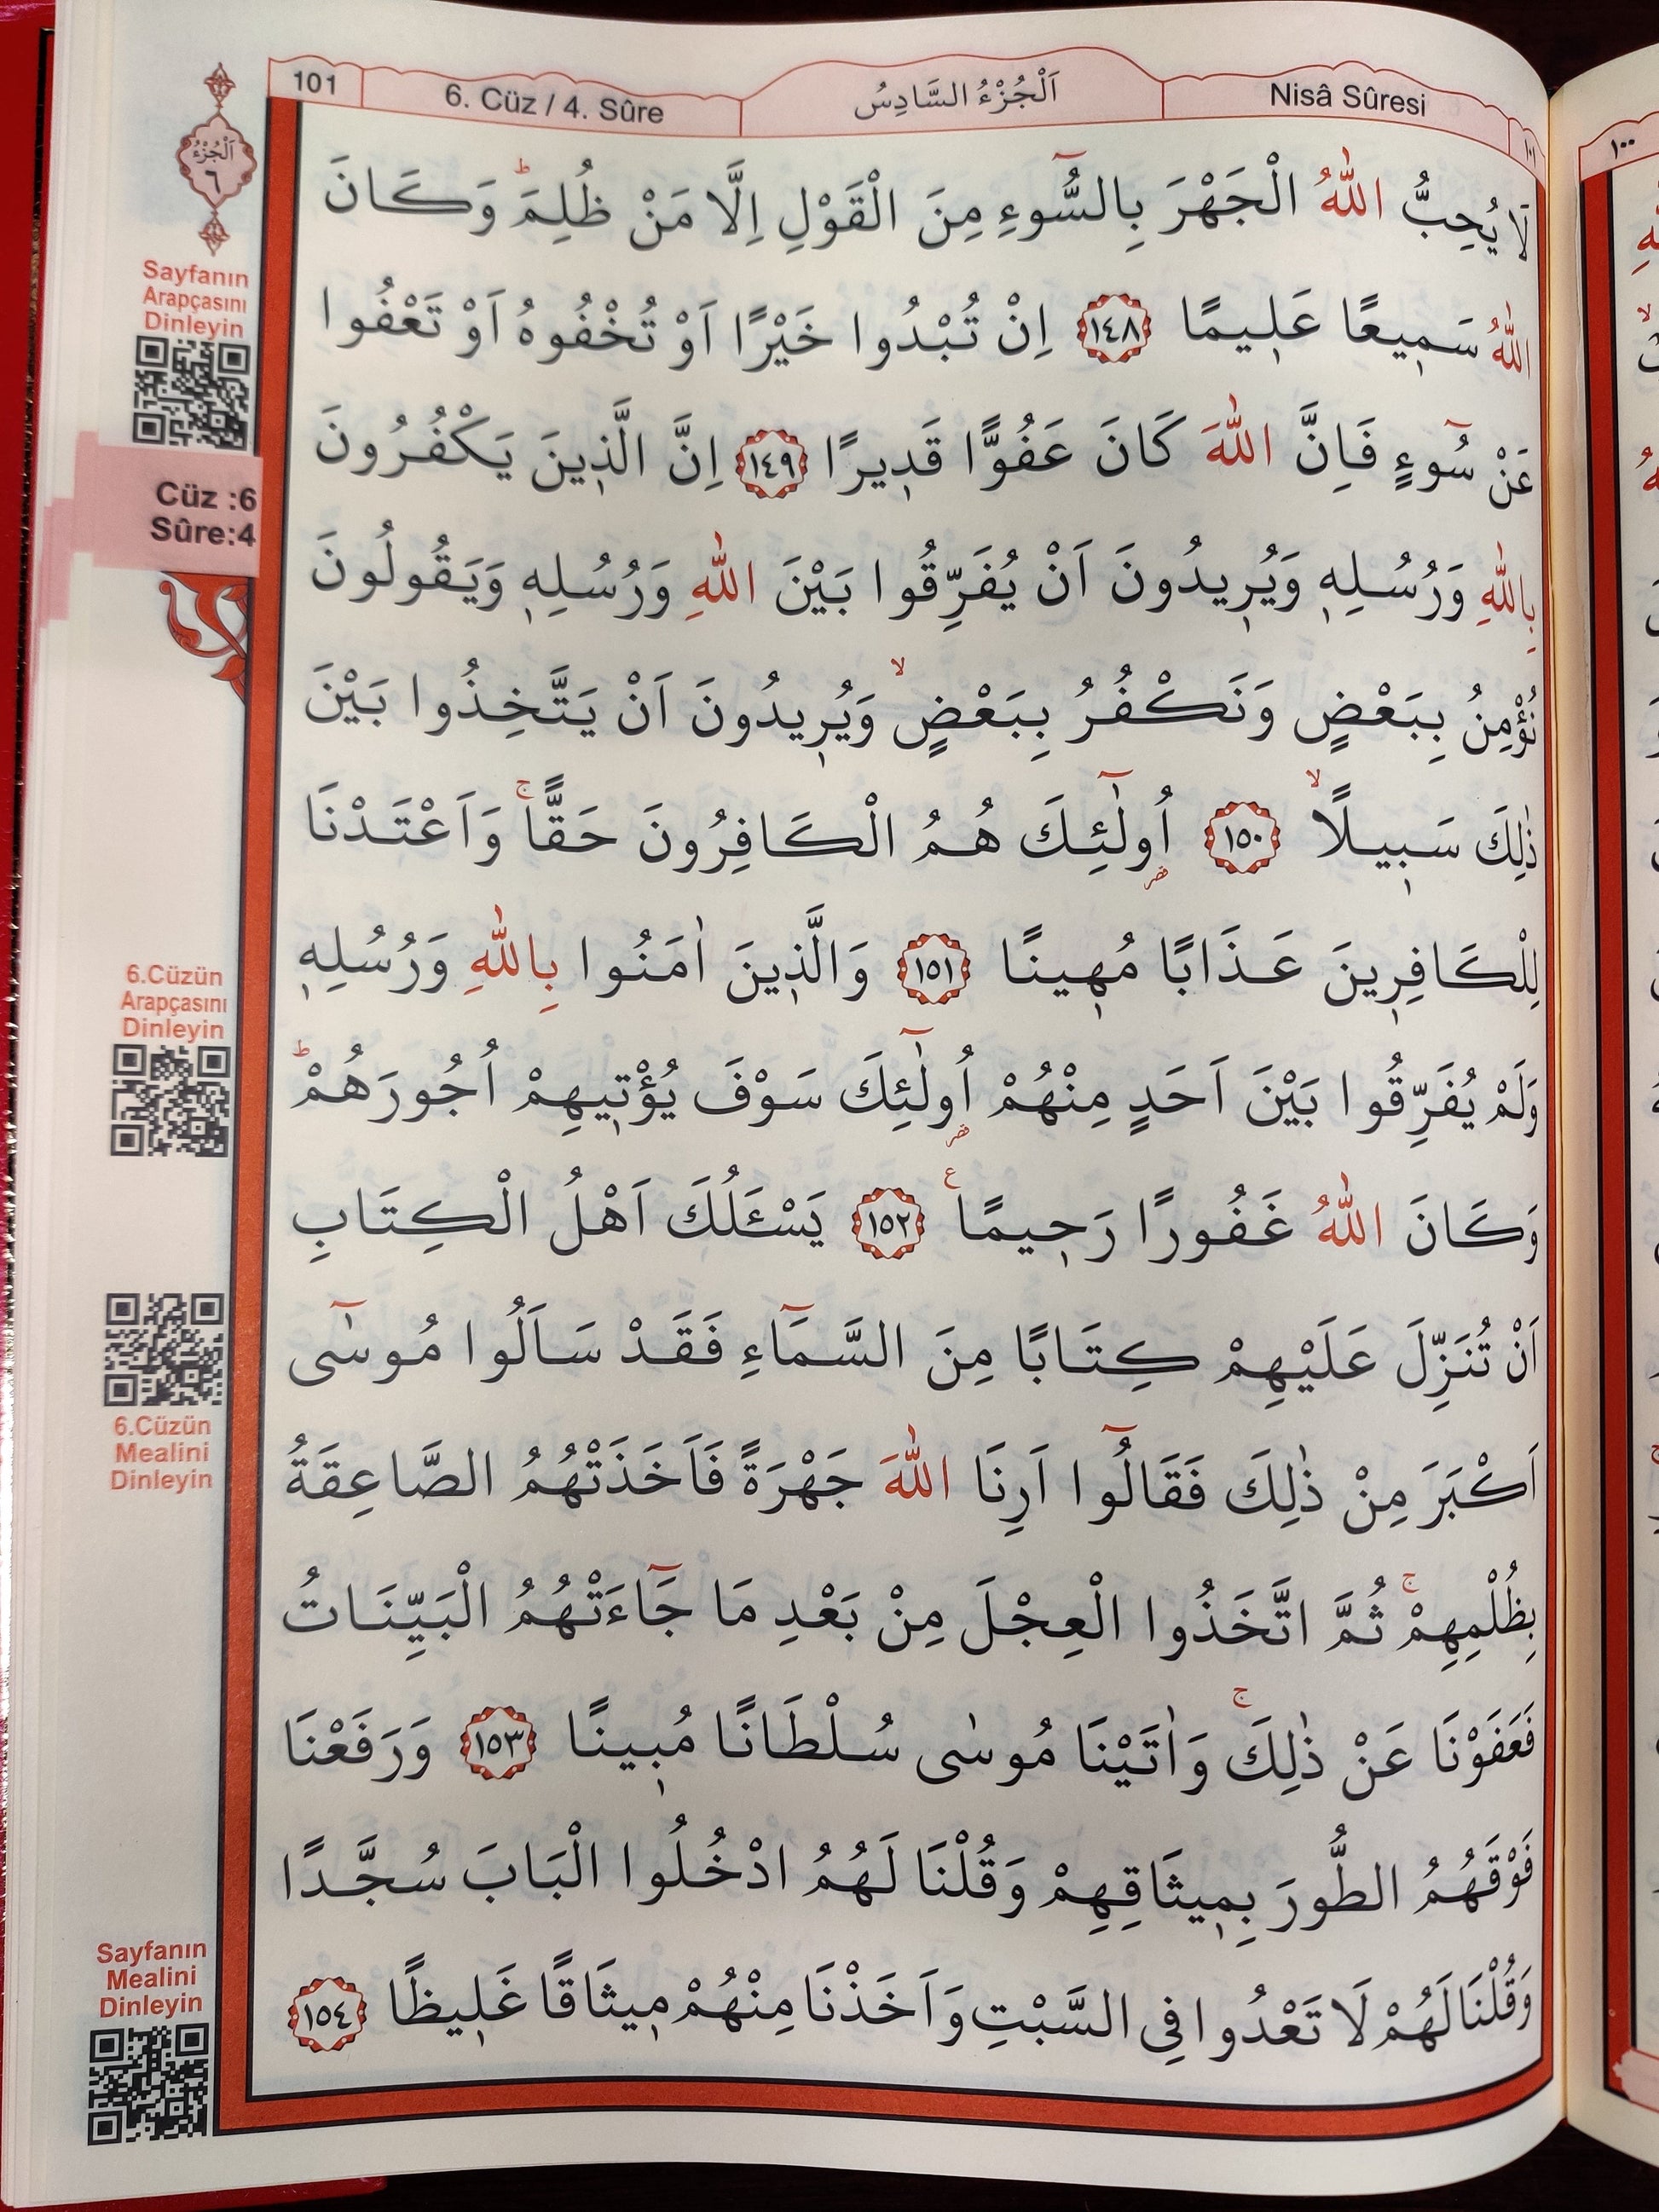 101
6. Cüz / 4. Sûre
اَلْجُزْءُ السَّادِسُ
Nisâ Sûresi
١٠١
لَا يُحِبُّ اللّٰهُ الْجَهْرَ بِالسُّٓوءِ مِنَ الْقَوْلِ اِلَّا مَنْ ظُلِمَۜ وَكَانَ
اللّٰهُ سَم۪يعًا عَل۪يمًا ﴿١٤٨﴾ اِنْ تُبْدُوا خَيْرًا اَوْ تُخْفُوهُ اَوْ تَعْفُوا
عَنْ سُٓوءٍ فَاِنَّ اللّٰهَ كَانَ عَفُوًّا قَد۪يرًا ﴿١٤٩﴾ اِنَّ الَّذ۪ينَ يَكْفُرُونَ
بِاللّٰهِ وَرُسُلِه۪ وَيُر۪يدُونَ اَنْ يُفَرِّقُوا بَيْنَ اللّٰهِ وَرُسُلِه۪ وَيَقُولُونَ
نُؤْمِنُ بِبَعْضٍ وَنَكْفُرُ بِبَعْضٍۙ وَيُر۪يدُونَ اَنْ يَتَّخِذُوا بَيْنَ
ذٰلِكَ سَب۪يلًاۙ ﴿١٥٠﴾ اُو۬لٰٓئِكَ هُمُ الْكَافِرُونَ حَقًّاۚ وَاَعْتَدْنَا
لِلْكَافِر۪ينَ عَذَابًا مُه۪ينًا ﴿١٥١﴾ وَالَّذ۪ينَ اٰمَنُوا بِاللّٰهِ وَرُسُلِه۪
وَلَمْ يُفَرِّقُوا بَيْنَ اَحَدٍ مِنْهُمْ اُو۬لٰٓئِكَ سَوْفَ يُؤْت۪يهِمْ اُجُورَهُمْۜ
وَكَانَ اللّٰهُ غَفُورًا رَح۪يمًاۧ ﴿١٥٢﴾ يَسْـَٔلُكَ اَهْلُ الْكِتَابِ
اَنْ تُنَزِّلَ عَلَيْهِمْ كِتَابًا مِنَ السَّمَٓاءِ فَقَدْ سَاَلُوا مُوسٰٓى
اَكْبَرَ مِنْ ذٰلِكَ فَقَالُٓوا اَرِنَا اللّٰهَ جَهْرَةً فَاَخَذَتْهُمُ الصَّاعِقَةُ
بِظُلْمِهِمْۚ ثُمَّ اتَّخَذُوا الْعِجْلَ مِنْ بَعْدِ مَا جَٓاءَتْهُمُ الْبَيِّنَاتُ
فَعَفَوْنَا عَنْ ذٰلِكَۚ وَاٰتَيْنَا مُوسٰى سُلْطَانًا مُب۪ينًا ﴿١٥٣﴾ وَرَفَعْنَا
فَوْقَهُمُ الطُّورَ بِم۪يثَاقِهِمْ وَقُلْنَا لَهُمُ ادْخُلُوا الْبَابَ سُجَّدًا
وَقُلْنَا لَهُمْ لَا تَعْدُوا فِي السَّبْتِ وَاَخَذْنَا مِنْهُمْ م۪يثَاقًا غَل۪يظًا ﴿١٥٤﴾
اَلْجُزْءُ
٦
Sayfanın
Arapçasını
Dinleyin
Cüz :6
Sûre:4
6.Cüzün
Arapçasını
Dinleyin
6.Cüzün
Mealini
Dinleyin
Sayfanın
Mealini
Dinleyin
١٠٠